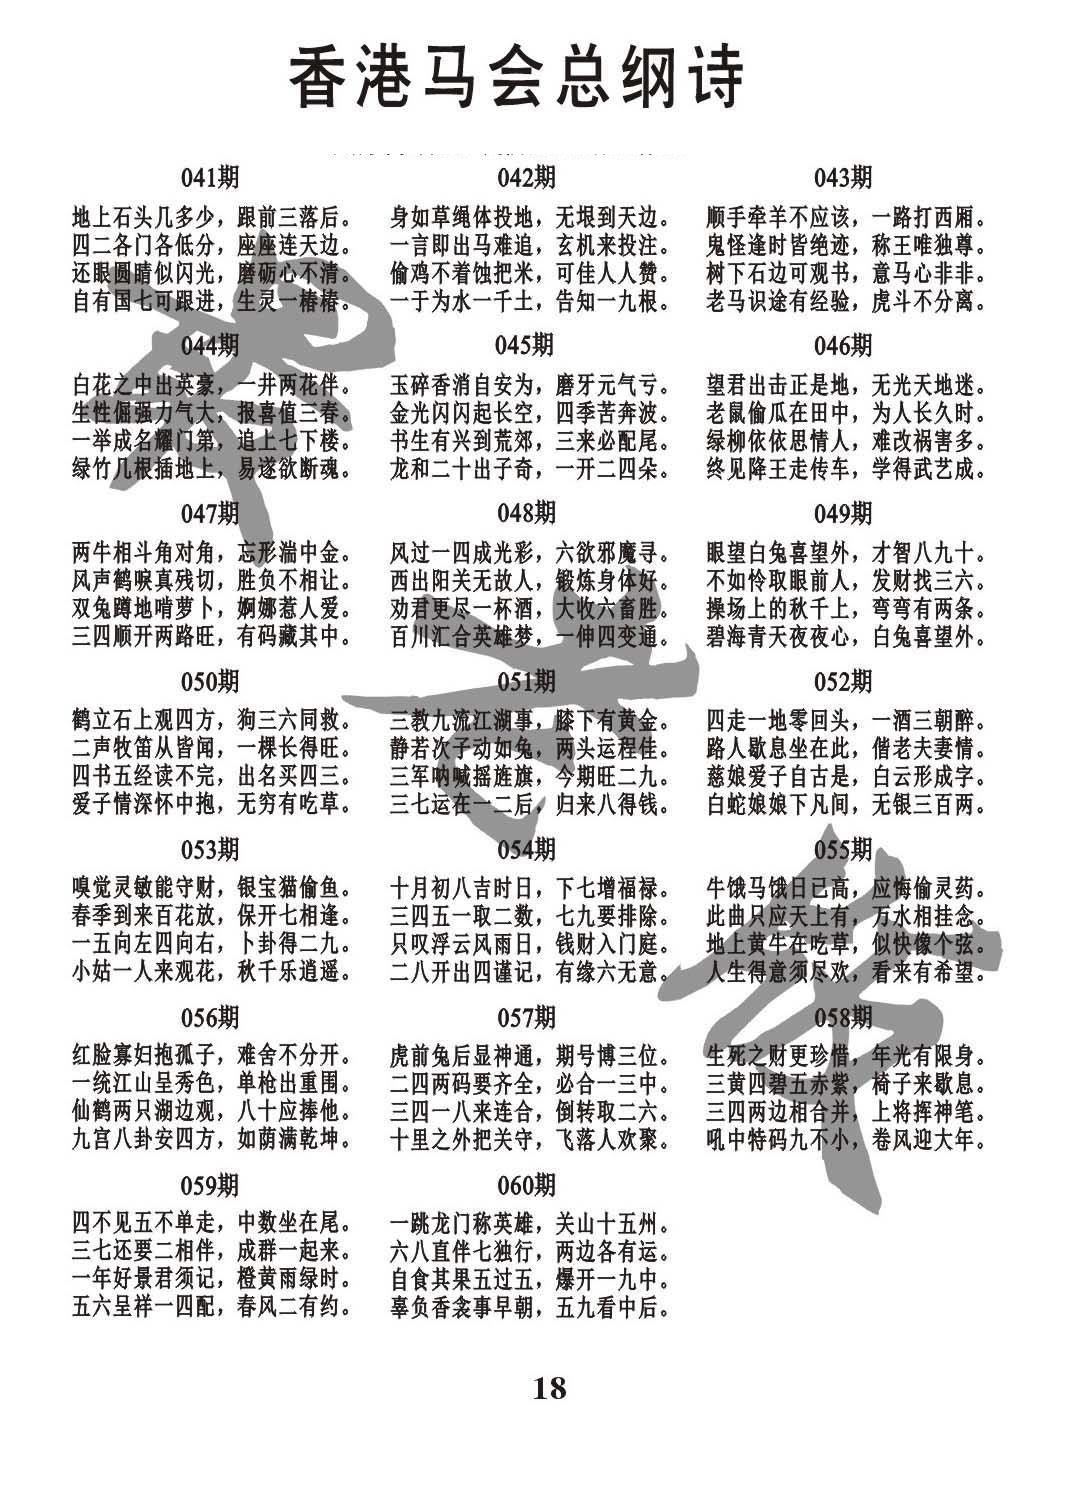 香港马会总纲诗
041期
地上石头几多少，跟前三落后。
四二各门各低分，座座连天边。
还眼圆睛似闪光，磨砺心不清。
自有国七可跟进，生灵一椿椿。
042期
身如草绳体投地，无垠到天边。
一言即出马难追，玄机来投注。
偷鸡不着蚀把米，可佳人人赞。
一于为水一千土，告知一九根。
043期
顺手牵羊不应该，一路打西厢。
鬼怪逢时皆绝迹，称王唯独尊。
树下石边可观书，意马心非非。
老马识途有经验，虎斗不分离。
044期
白花之中出英豪，一井两花伴。
生性倔强力气大，报喜值三春。
一举成名耀门第，追上七下楼。
绿竹几根插地上，易遂欲断魂。
045期
玉碎香消自安为，磨牙元气亏。
金光闪闪起长空，四季苦奔波。
书生有兴到荒郊，三来必配尾。
龙和二十出子奇，一开二四朵。
046期
望君出击正是地，无光天地迷。
老鼠偷瓜在田中，为人长久时。
绿柳依依思情人，难改祸害多。
终见降王走传车，学得武艺成。
047期
两牛相斗角对角，忘形湍中金。
风声鹤唳真残切，胜负不相让。
双兔蹲地啃萝卜，婀娜惹人爱。
三四顺开两路旺，有码藏其中。
048期
风过一四成光彩，六欲邪魔寻。
西出阳关无故人，锻炼身体好。
劝君更尽一杯酒，大收六畜胜。
百川汇合英雄梦，一伸四变通。
049期
眼望白兔喜望外，才智八九十。
不如怜取眼前人，发财找三六。
操场上的秋千上，弯弯有两条。
碧海青天夜夜心，白兔喜望外。
050期
鹤立石上观四方，狗三六同救。
二声牧笛从皆闻，一棵长得旺。
四书五经读不完，出名买四三。
爱子情深怀中抱，无穷有吃草。
051期
三教九流江湖事，膝下有黄金。
静若次子动如兔，两头运程佳。
三军呐喊摇旌旗，今期旺二九。
三七运在一二后，归来八得钱。
052期
四走一地零回头，一酒三朝醉。
路人歇息坐在此，偕老夫妻情。
慈娘爱子自古是，白云形成字。
白蛇娘娘下凡间，无银三百两。
053期
嗅觉灵敏能守财，银宝猫偷鱼。
春季到来百花放，保开七相逢。
一五向左四向右，卜卦得二九。
小姑一人来观花，秋千乐逍遥。
054期
十月初八吉时日，下七增福禄。
三四五一取二数，七九要排除。
只叹浮云风雨日，钱财入门庭。
二八开出四谨记，有缘六无意。
055期
牛饿马饿日已高，应悔偷灵药。
此曲只应天上有，万水相挂念。
地上黄牛在吃草，似快像个弦。
人生得意须尽欢，看来有希望。
056期
红脸寡妇抱孤子，难舍不分开。
一统江山呈秀色，单枪出重围。
仙鹤两只湖边观，八十应捧他。
九宫八卦安四方，如荫满乾坤。
057期
虎前兔后显神通，期号博三位。
二四两码要齐全，必合一三中。
三四一八来连合，倒转取二六。
十里之外把关守，飞落人欢聚。
058期
生死之财更珍惜，年光有限身。
三黄四碧五赤紫，椅子来歇息。
三四两边相合并，上将挥神笔。
吼中特码九不小，卷风迎大年。
059期
四不见五不单走，中数坐在尾。
三七还要二相伴，成群一起来。
一年好景君须记，橙黄雨绿时。
五六呈祥一四配，春风二有约。
060期
一跳龙门称英雄，关山十五州。
六八直伴七独行，两边各有运。
自食其果五过五，爆开一九中。
辜负香衾事早朝，五九看中后。
18